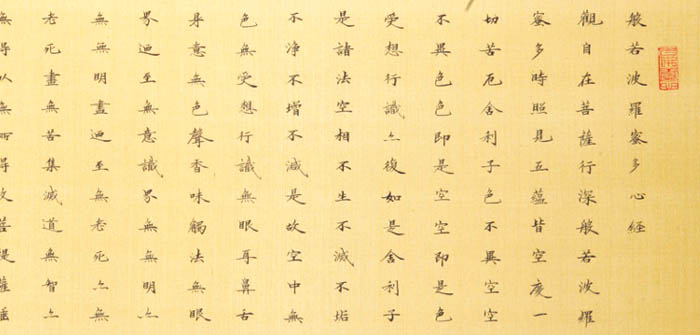 般若波羅蜜多心經
觀自在菩薩行深般若波羅
蜜多時照見五蘊皆空度一
切苦厄舍利子色不異空空
不異色色即是空空即是色
受想行識亦復如是舍利子
是諸法空相不生不滅不垢
不淨不增不減是故空中無
色無受想行識無眼耳鼻舌
身意無色聲香味觸法無眼
界迺至無意識界無無明亦
無無明盡迺至無老死亦無
老死盡無苦集滅道無智亦
無得以無所得故菩提薩埵